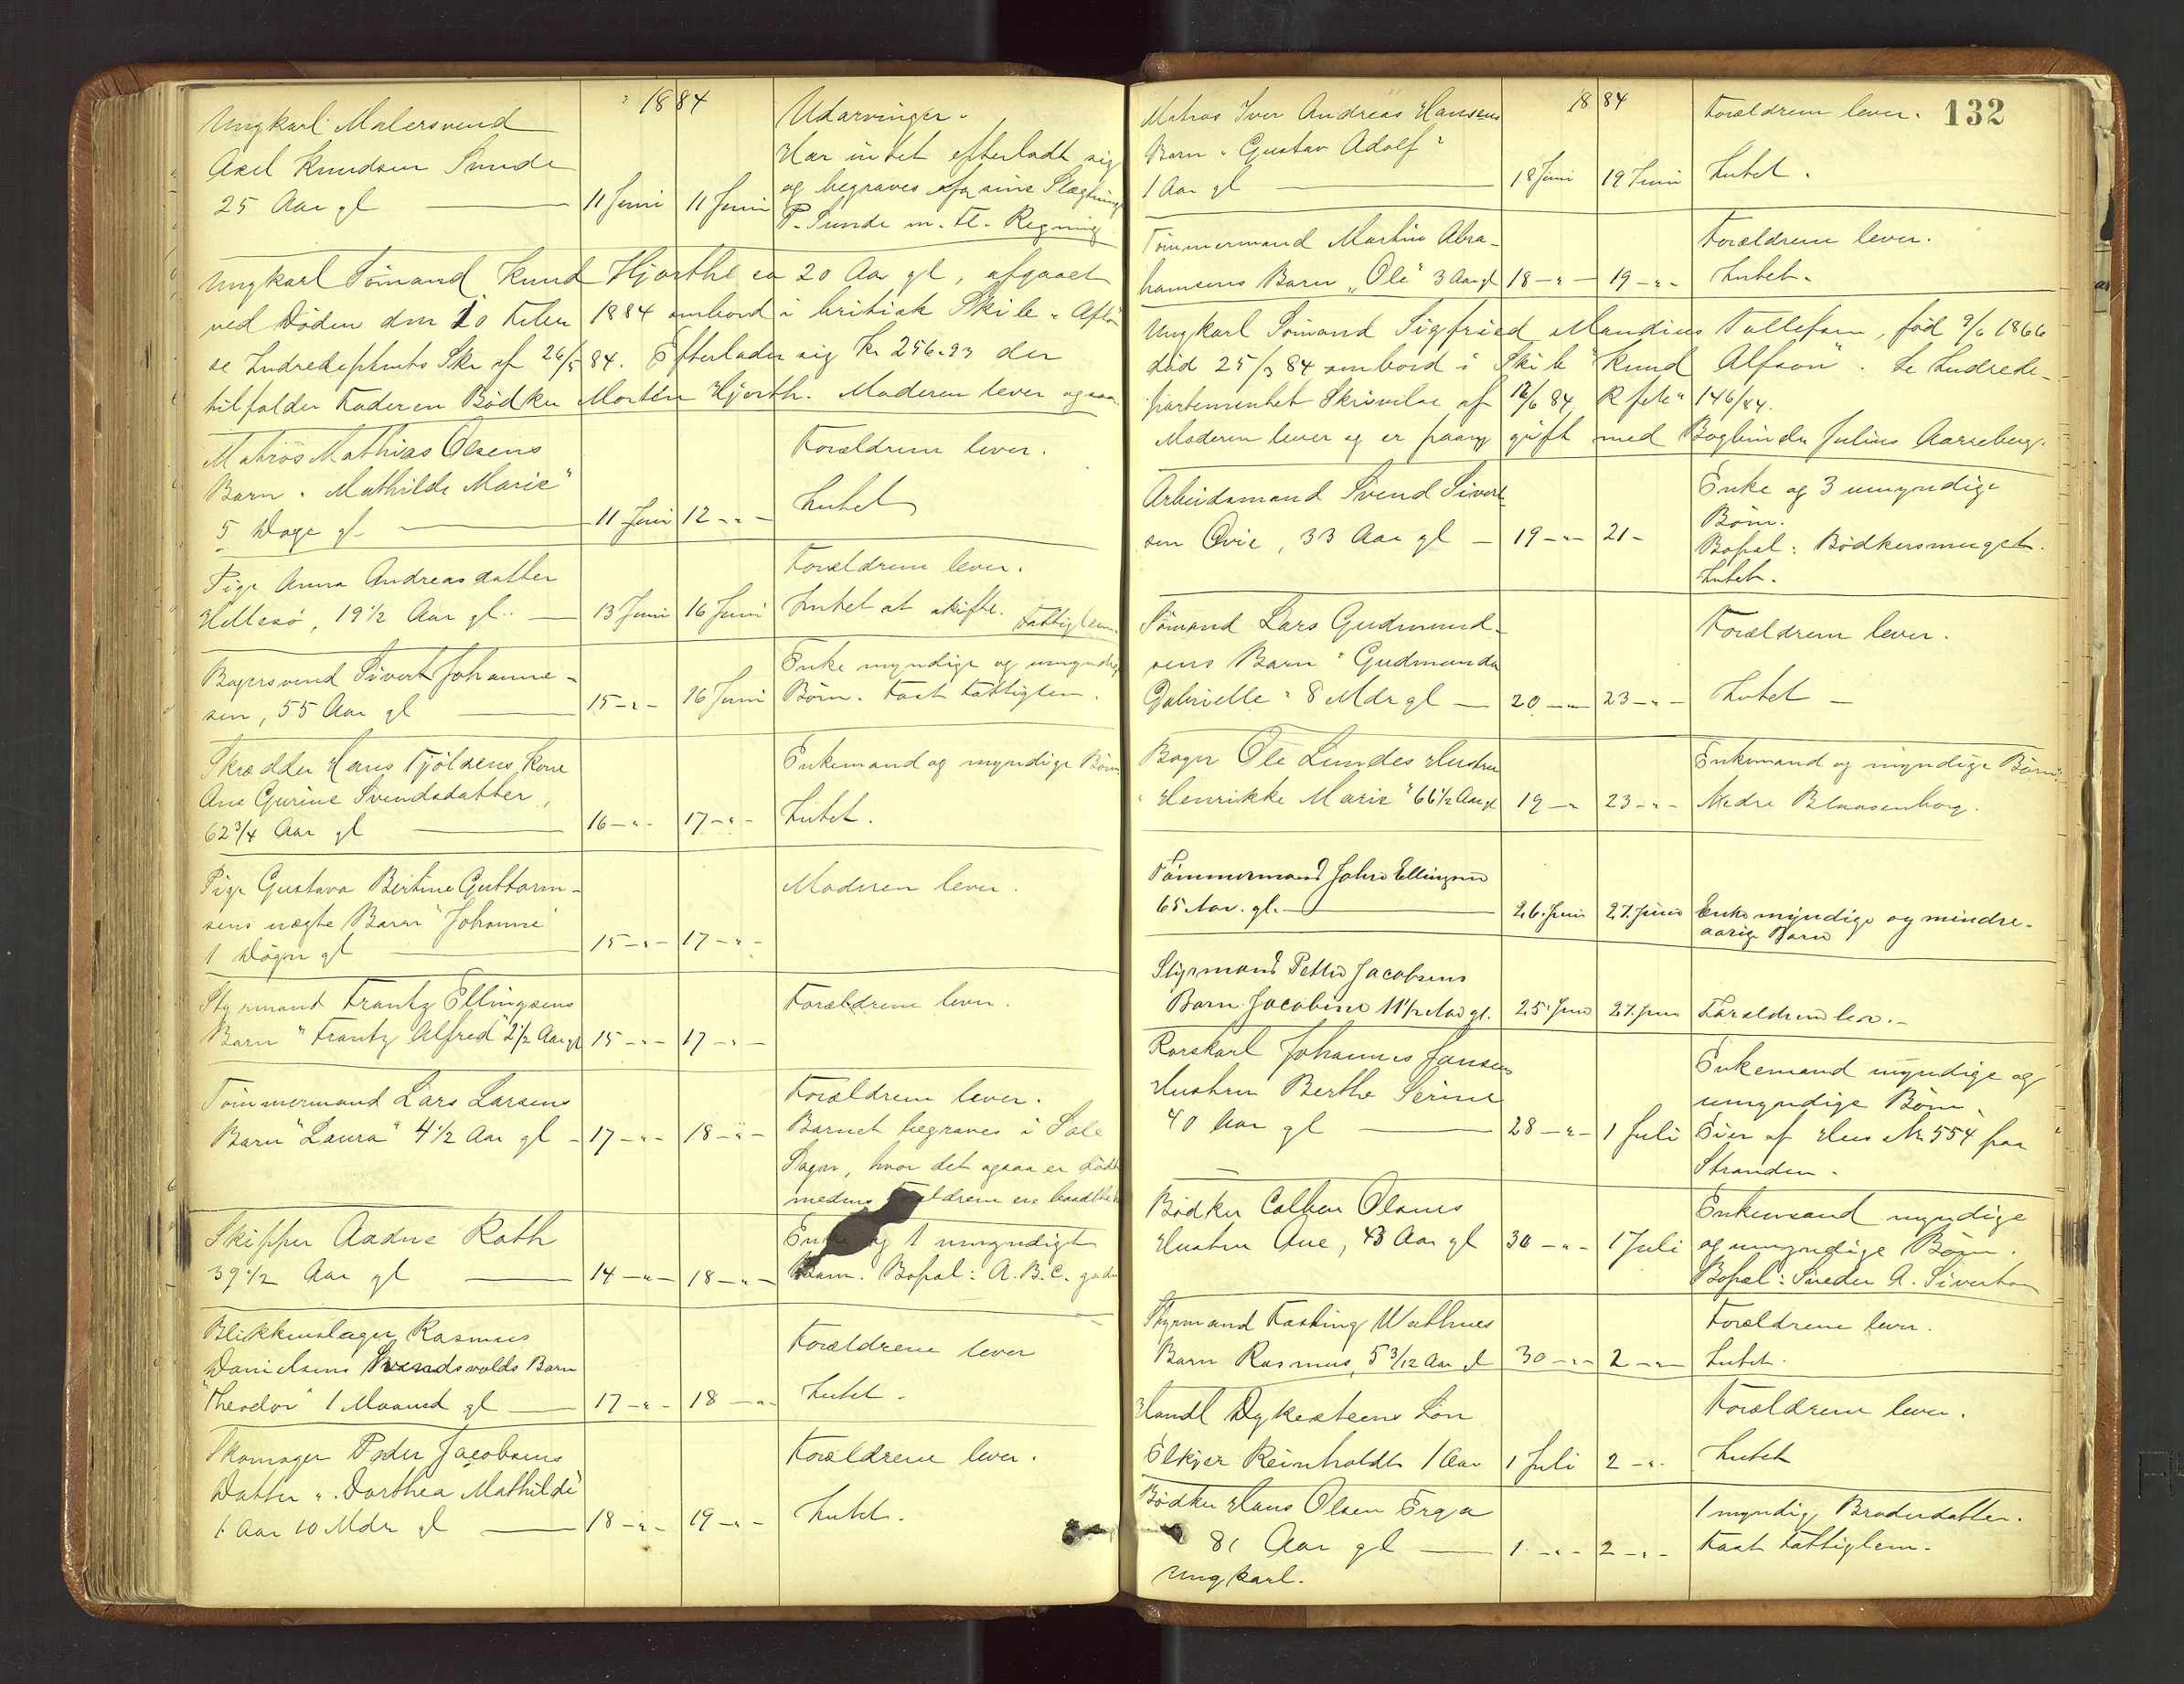 1884
Ungkarl Malersvend
Axel Knudsen Sunde
25 Aar gl — 11 Juni 11 Juni
Udarvinger.
Har intet efterladt sig
og begraves for sine Slægtninge
P. Sunde m. Fl. Regning
Ungkarl Sömand Knud Hjorthe ca 20 Aar gl, afgaaet
ved Döden den 10 Febr 1884 ombord i britisk Skib
se Indredeptmts Skr af 26/5 84. Efterlader sig Kr 256.93 der
tilfalder Faderen Bödker Morten Hjorth. Moderen lever ogsaa
Matros Mathias Olsens
Barn "Mathilde Marie"
5 Dage gl — 11 Juni 12 -"-
Forældrene lever.
Intet
Pige Anna Andreasdatter
Hellesö, 19 1/2 Aar gl. — 13 Juni 16 Juni
Forældrene lever.
Intet at skifte. Fattiglem.
Bagersvend Sivert Johanne-
sen, 55 Aar gl — 15 -"- 16 Juni
Enke myndige og umyndige
Börn. Fast Fattiglem.
Skrædder Hans Fjölsens Kone
Ane Gurine Svendsdatter,
62 3/4 Aar gl — 16 -"- 17 -"-
Enkemand og myndige Börn
Intet.
Pige Gustava Bertine Guttorm-
sens uægte Barn "Johanne"
1 Dögn gl — 15 -"- 17 -"-
Moderen lever.
Styrmand Frantz Ellingsens
Barn "Frantz Alfred" 2 1/2 Aar gl 15 -"- 17 -"-
Forældrene lever.
Tömmermand Lars Larsens
Barn "Laura" 4 1/2 Aar gl - 17 -"- 18 -"-
Forældrene lever.
Barnet begraves i Sole
Sogn, hvor det ogsaa er födt
medens Forældrene ere
Skipper Aadne Roth
39 1/2 Aar gl — 14 -"- 18 -"-
Enke og 1 umyndigt
Barn. Bopæl: A.B.C. gaden
Blikkenslager Rasmus
Danielsens Svendsvolds Barn
"Theodor" 1 Maaned gl — 17 -"- 18 -"-
Forældrene lever
Intet.
Skomager Peder Jacobsens
Datter "Dorthea Mathilde"
1 Aar 10 Mdr gl — 18 -"- 19 -"-
Forældrene lever.
Intet.
132
1884
Matros Iver Andreas Hansens
Barn "Gustav Adolf"
1 Aar gl — 18 Juni 19 Juni
Forældrene lever.
Intet.
Tömmermand Martin Abra-
hamsens Barn "Ole" 3 Aar gl 18 -"- 19 -"-
Forældrene lever.
Intet.
Ungkarl Sömand Sigfried Mandius Tollefsen, född 9/6 1866
död 25/3 84 ombord i Skib "Knud Alfson". Se Indrede-
partementet Skrivelse af 12/6 84, 146/84.
Moderen lever og er paany gift med Bogbinder Julius Aarreberg.
Arbeidsmand Svend Sivert-
sen Qvie, 33 Aar gl — 19 -"- 21 -
Enke og 3 umyndige
Börn.
Bopæl: Bödkersmuget.
Intet.
Sömand Lars Gudmund-
sens Barn "Gudmunda
Gabrielle" 8 Mdr gl — 20 -"- 23 -"-
Forældrene lever.
Intet —
Bager Ole Lundes Hustru
"Henrikke Marie" 66 1/2 Aar gl 19 -"- 23 -"-
Enkemand og myndige Börn.
Nedre Blaasenborg.
Tömmermand John Ellingsen
65 Aar. gl. — 26. Juni 27. Juni
Enke myndige og mindre-
aarige Barn
Styrmand Petter Jacobsens
Barn Jacobine 11 1/2 Aar gl. 25. Juni 27. Juni
Forældrene lever. -
Rorskarl Johannes Jansens
Hustru Berthe Serine
40 Aar gl — 28 -"- 1 Juli
Enkemand myndige og
umyndige Börn,
Eier af Hus No 554 paa
Stranden.
Bödker Colben Olsens
Hustru Ane, 43 Aar gl 30 -"- 1 Juli
Enkemand myndige
og umyndige Börn.
Bopæl: Sneder A. Sivertson
Styrmand Fasting Wathnes
Barn Rasmus, 5 3/12 Aar gl 30 -"- 2 -"-
Forældrene lever.
Intet.
Handl Dykesteens Sön
Elkjer Reinholdt 1 Aar 1 Juli 2 -"-
Forældrene lever.
Intet
Bödker Hans Olsen Erga
81 Aar gl — 1 -"- 2 -"-
Ungkarl.
1 myndig Broderdatter.
Fast Fattiglem.